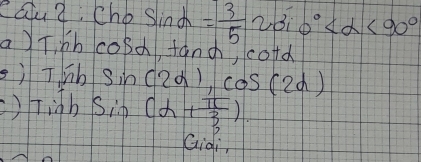 Câu 2: Cho Sin α = 3/5 với 0° < α < 90°
a) Tính cosα, tanα, cotα
b) Tính Sin(2α), cos(2α)
c) Tính Sin(α + π/3)
Giải,